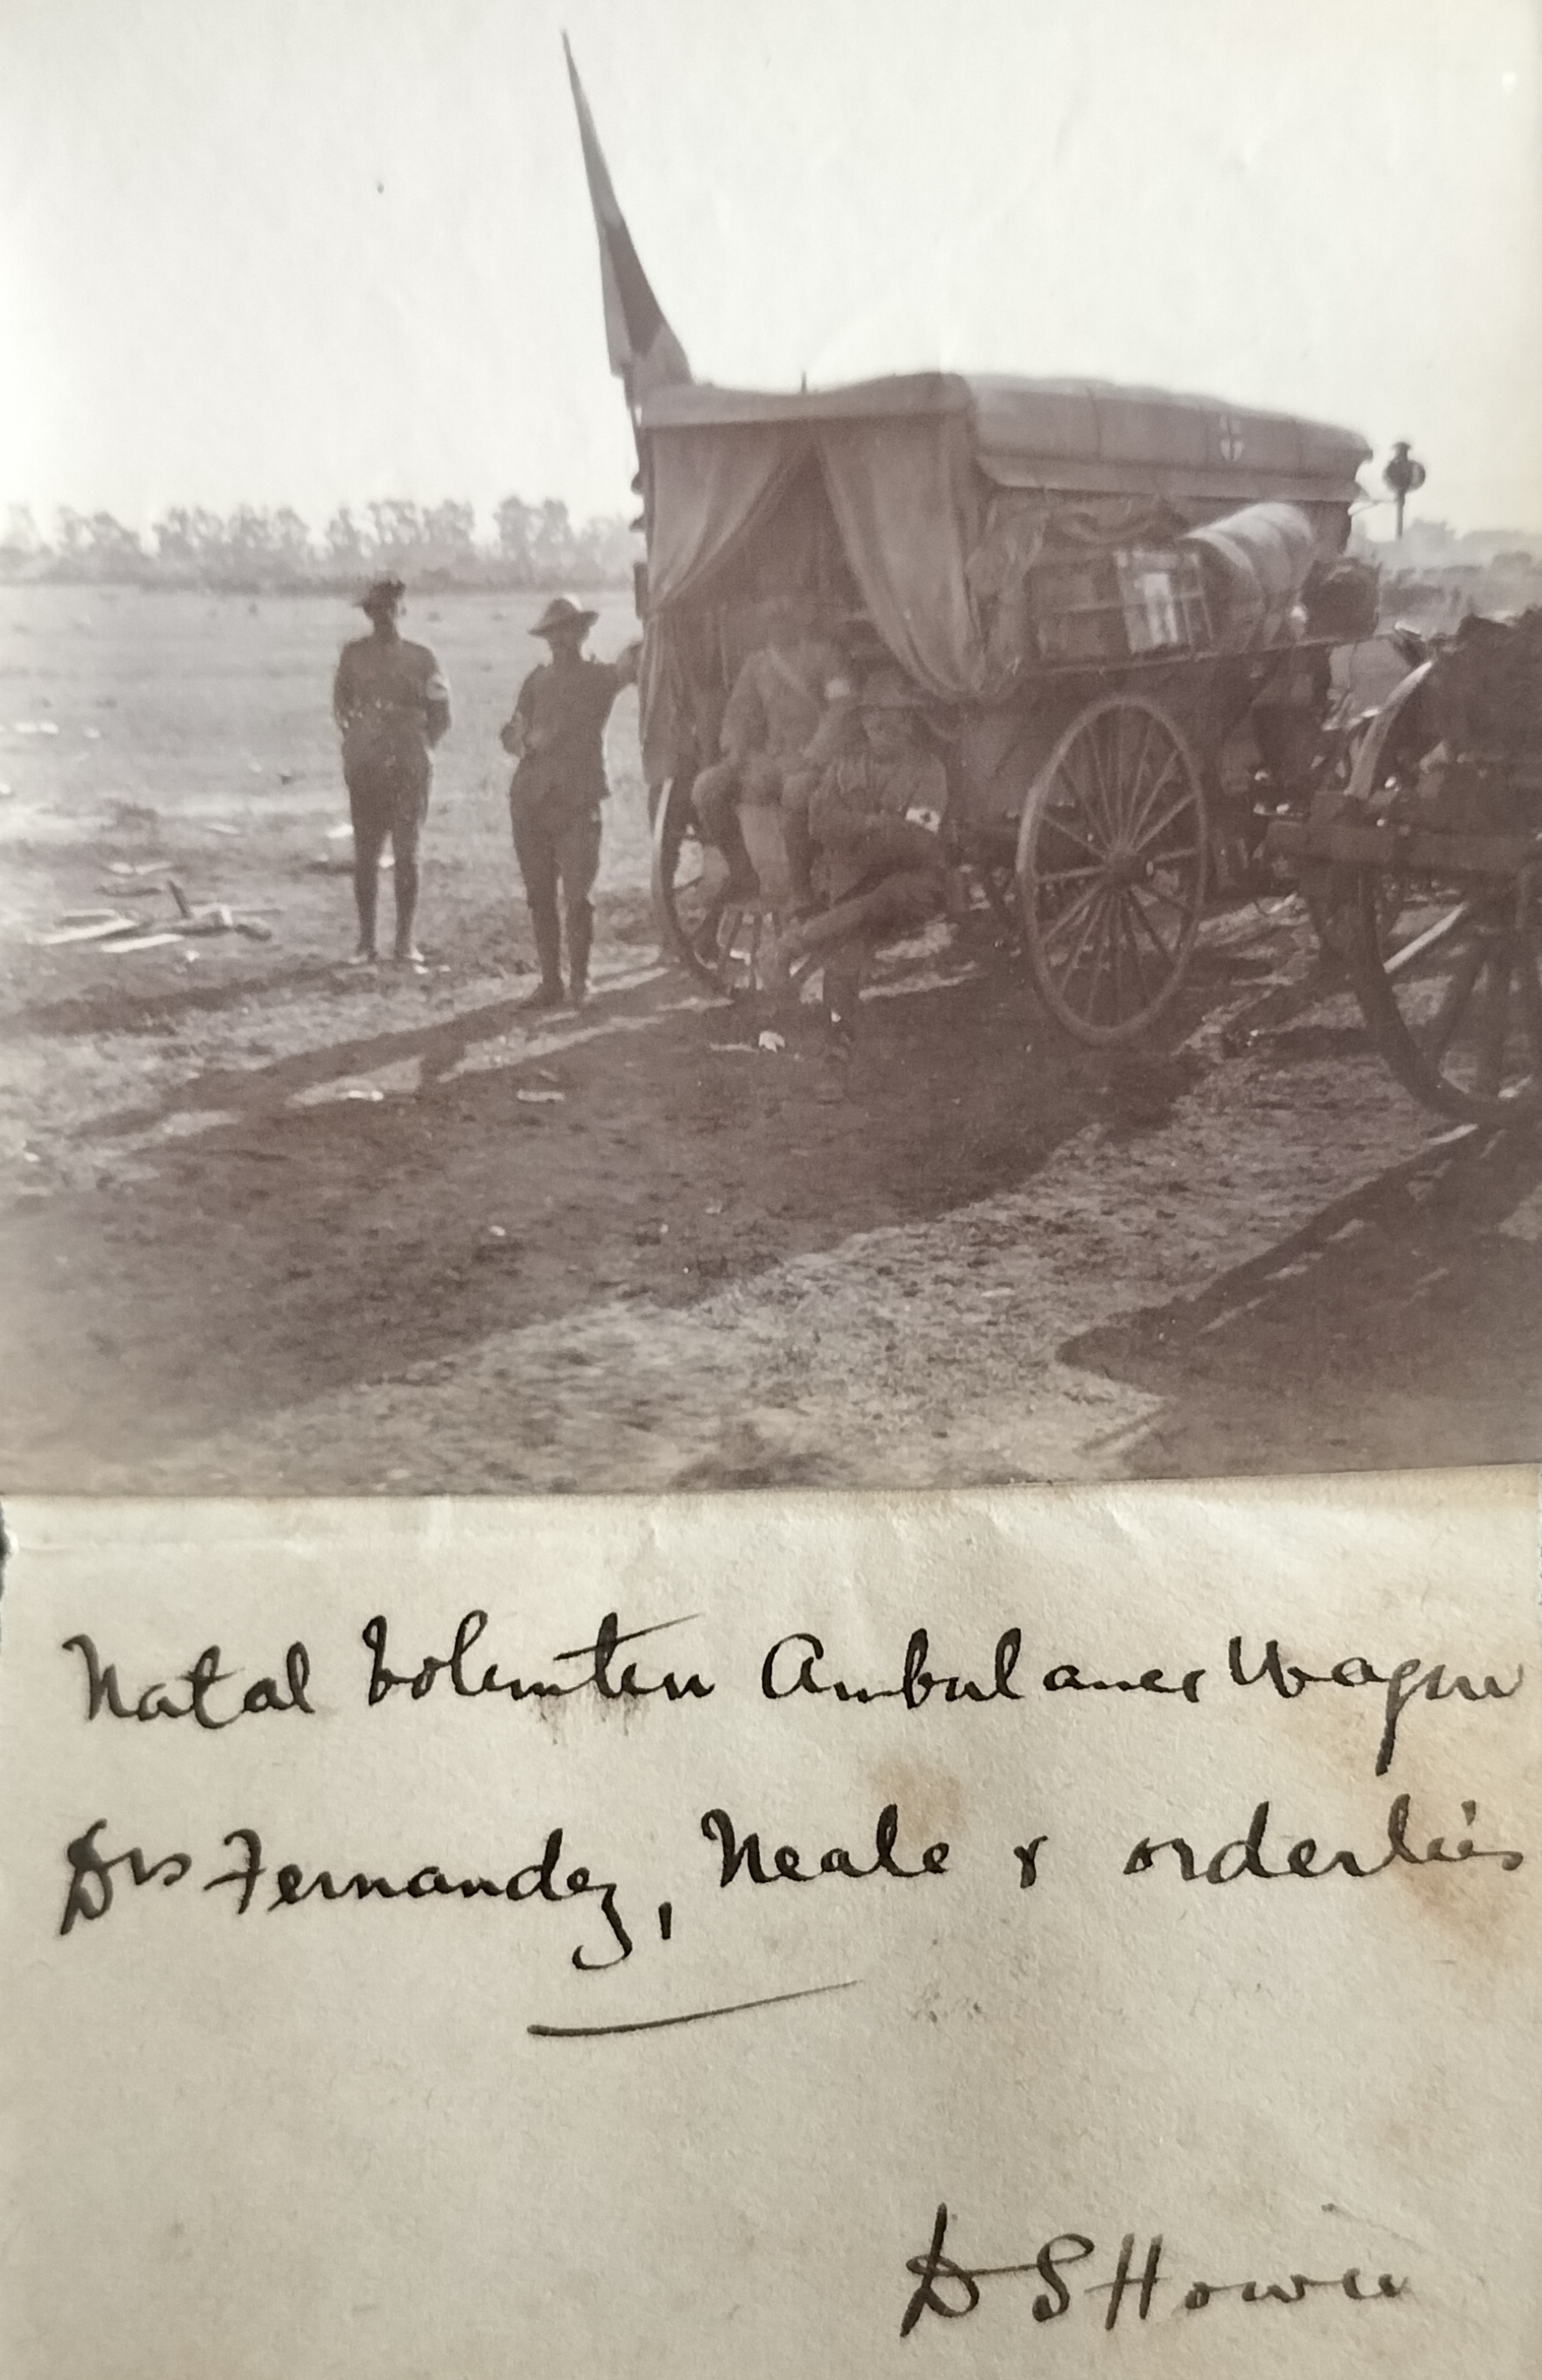 Natal Volunteer Ambulance Wagon
Drs Fernandez, Neale & orderlies
D S